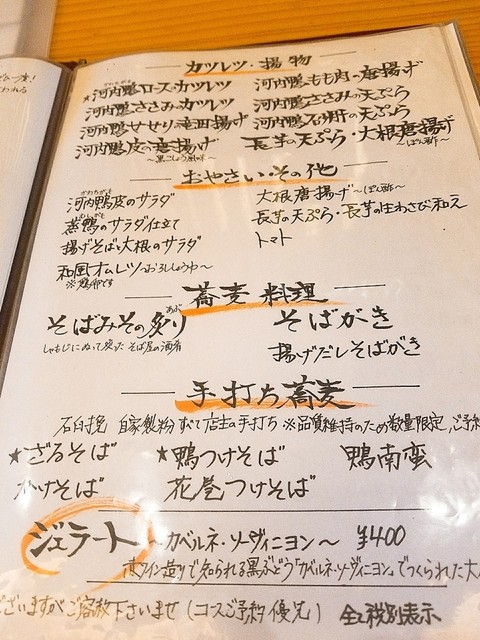 カツレツ・揚物
★河内鴨ロースのカツレツ 河内鴨もも肉の唐揚げ
河内鴨ささみのカツレツ 河内鴨ささみの天ぷら
河内鴨せせり竜田揚げ 河内鴨砂肝の天ぷら
河内鴨皮の唐揚げ 長芋の天ぷら・大根唐揚げ
〜黒こしょう風味〜 〜ぽん酢〜
おやさい・その他
河内鴨皮のサラダ 大根唐揚げ〜ぽん酢〜
蒸鴨のサラダ仕立て 長芋の天ぷら・長芋の生わさび和え
揚げそばと大根のサラダ トマト
和風オムレツ〜おろししょうゆ〜
※鶏卵です
蕎麦料理
そばみその炙り そばがき
しゃもじにぬって炙った そば屋の酒肴 揚げだしそばがき
手打ち蕎麦
石臼挽 自家製粉 すべて店主の手打ち ※品質維持のため数量限定、ご予約
★ざるそば ★鴨つけそば 鴨南蛮
かけそば 花巻つけそば
ジェラート 〜カベルネ・ソーヴィニヨン〜 ¥400
赤ワイン造りで知られる黒ぶどう「カベルネ・ソーヴィニヨン」でつくられた大人
ございますがご容赦下さいませ(コースご予約優先) 全て税別表示